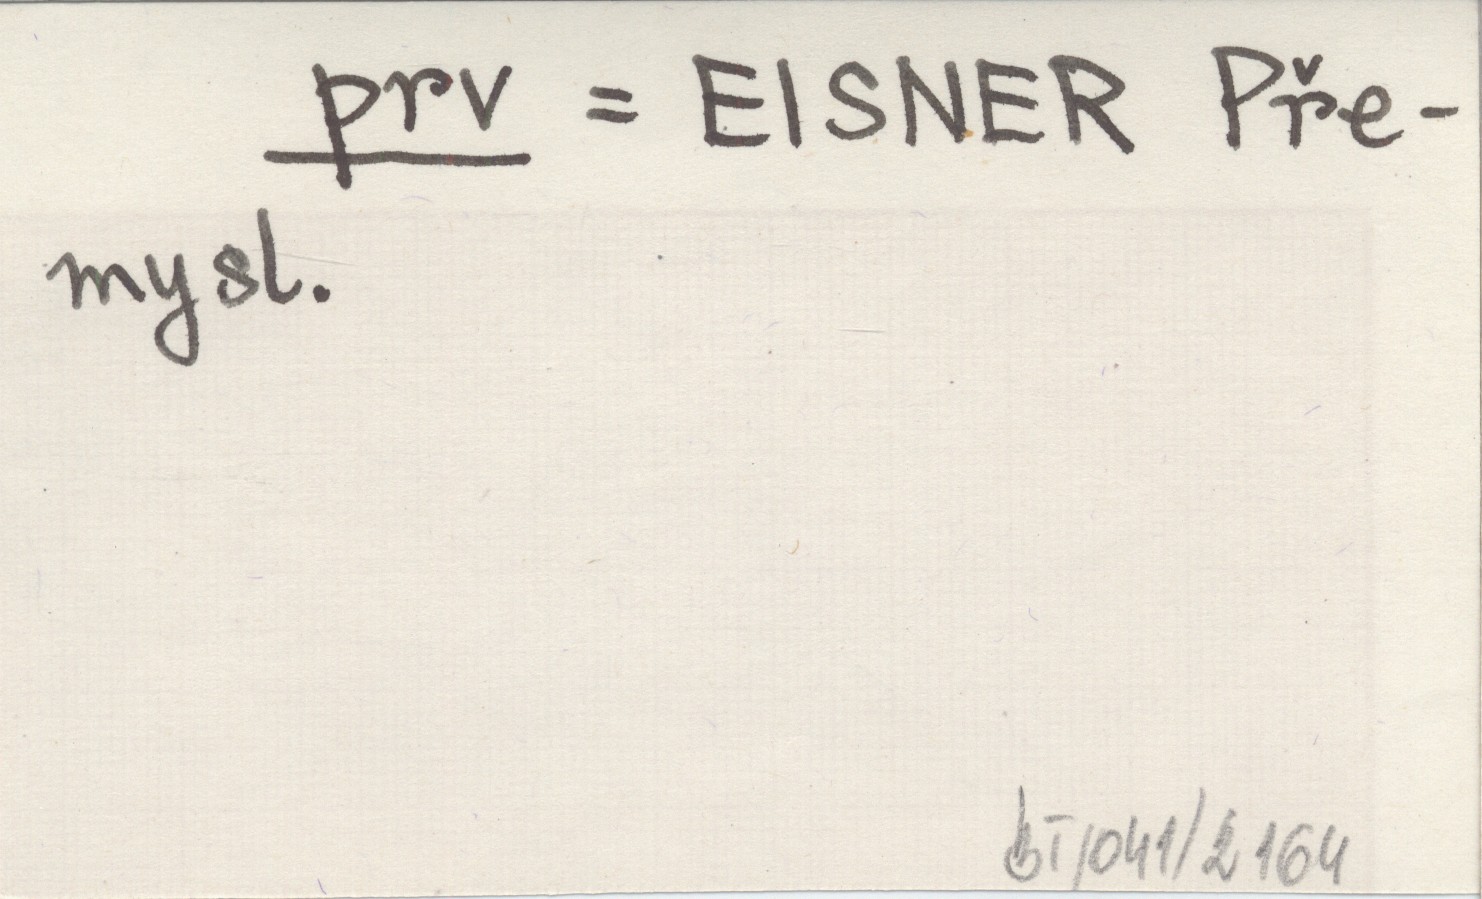 prv = EISNER Pře-
mysl.
bT/041/2164